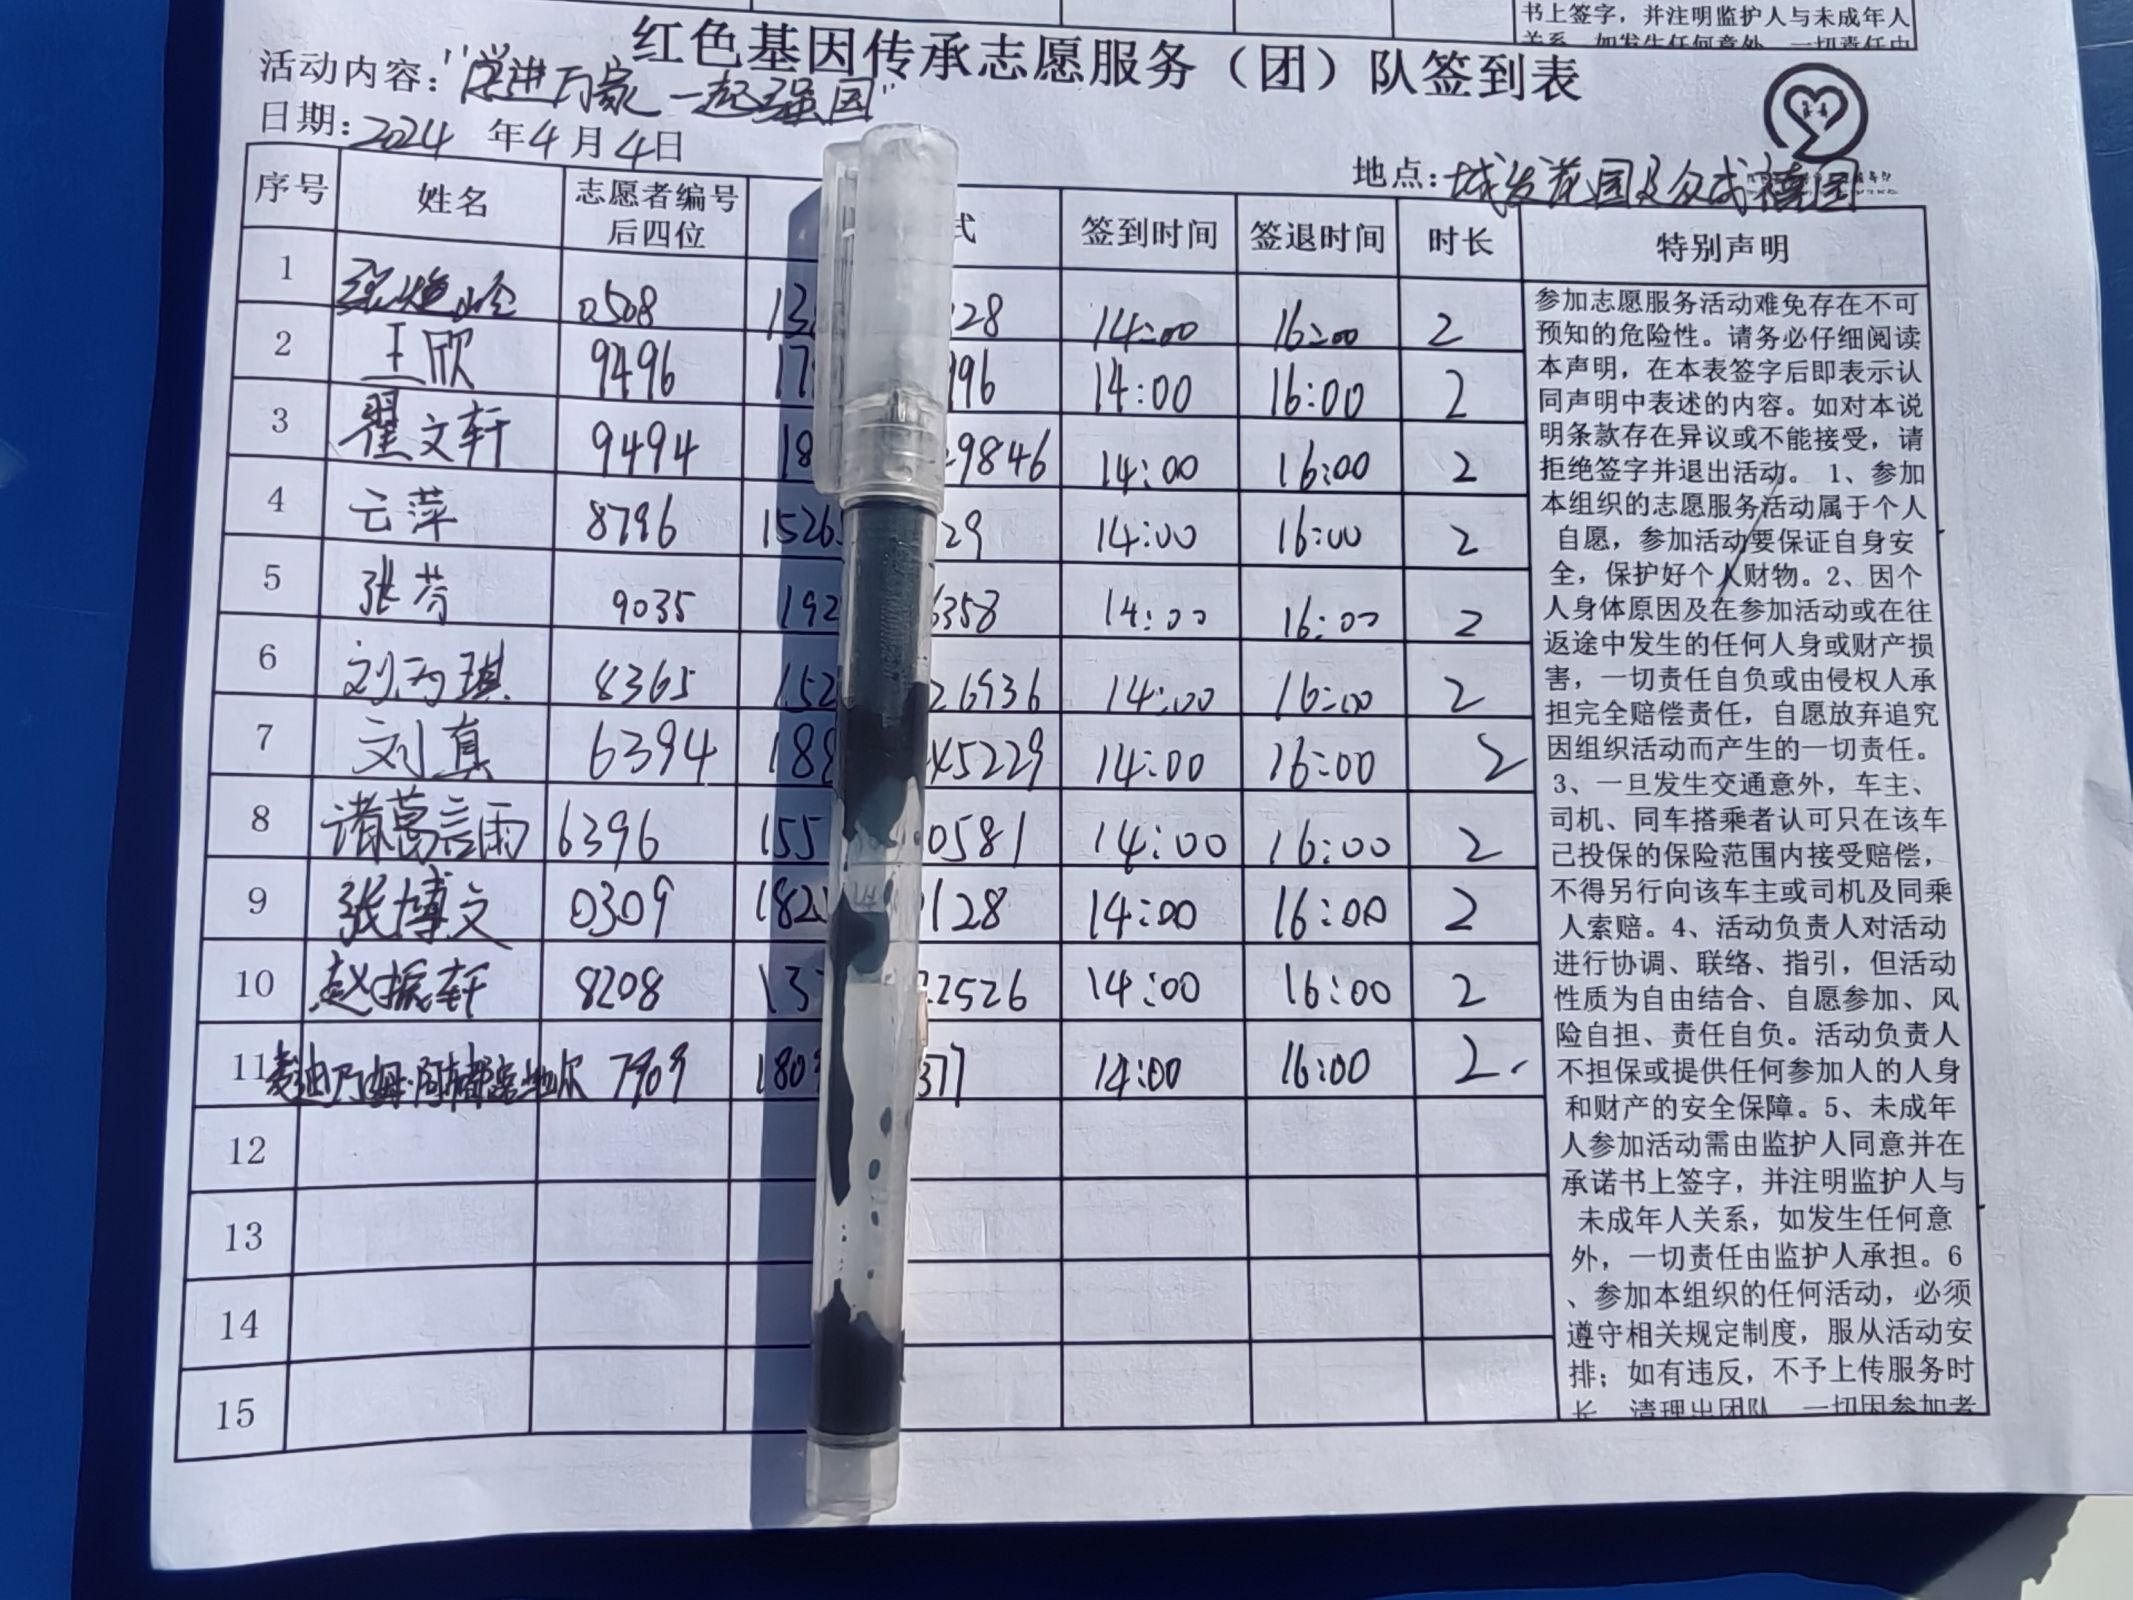 书上签字，并注明监护人与未成年人
关系，如发生任何意外，一切责任由
红色基因传承志愿服务（团）队签到表
活动内容："学进万家 一起强国"
日期：2024 年 4 月 4 日
地点：城发花园及众成德园
序号 姓名 志愿者编号后四位 式 签到时间 签退时间 时长 特别声明
1 0508 13 28 14:00 16:00 2
2 王欣 9496 17 96 14:00 16:00 2
3 翟文轩 9494 18 9846 14:00 16:00 2
4 云萍 8796 1526 29 14:00 16:00 2
5 张芳 9035 192 6358 14:00 16:00 2
6 刘雨琪 8365 152 26936 14:00 16:00 2
7 刘真 6394 188 45229 14:00 16:00 2
8 诸葛言雨 6396 155 0581 14:00 16:00 2
9 张博文 0309 182 128 14:00 16:00 2
10 赵振轩 8208 137 2526 14:00 16:00 2
11 7909 180 377 14:00 16:00 2
12
13
14
15
参加志愿服务活动难免存在不可
预知的危险性。请务必仔细阅读
本声明，在本表签字后即表示认
同声明中表述的内容。如对本说
明条款存在异议或不能接受，请
拒绝签字并退出活动。1、参加
本组织的志愿服务活动属于个人
自愿，参加活动要保证自身安
全，保护好个人财物。2、因个
人身体原因及在参加活动或在往
返途中发生的任何人身或财产损
害，一切责任自负或由侵权人承
担完全赔偿责任，自愿放弃追究
因组织活动而产生的一切责任。
3、一旦发生交通意外，车主、
司机、同车搭乘者认可只在该车
已投保的保险范围内接受赔偿，
不得另行向该车主或司机及同乘
人索赔。4、活动负责人对活动
进行协调、联络、指引，但活动
性质为自由结合、自愿参加、风
险自担、责任自负。活动负责人
不担保或提供任何参加人的人身
和财产的安全保障。5、未成年
人参加活动需由监护人同意并在
承诺书上签字，并注明监护人与
未成年人关系，如发生任何意
外，一切责任由监护人承担。6
、参加本组织的任何活动，必须
遵守相关规定制度，服从活动安
排；如有违反，不予上传服务时
长，清理出团队，一切因参加者